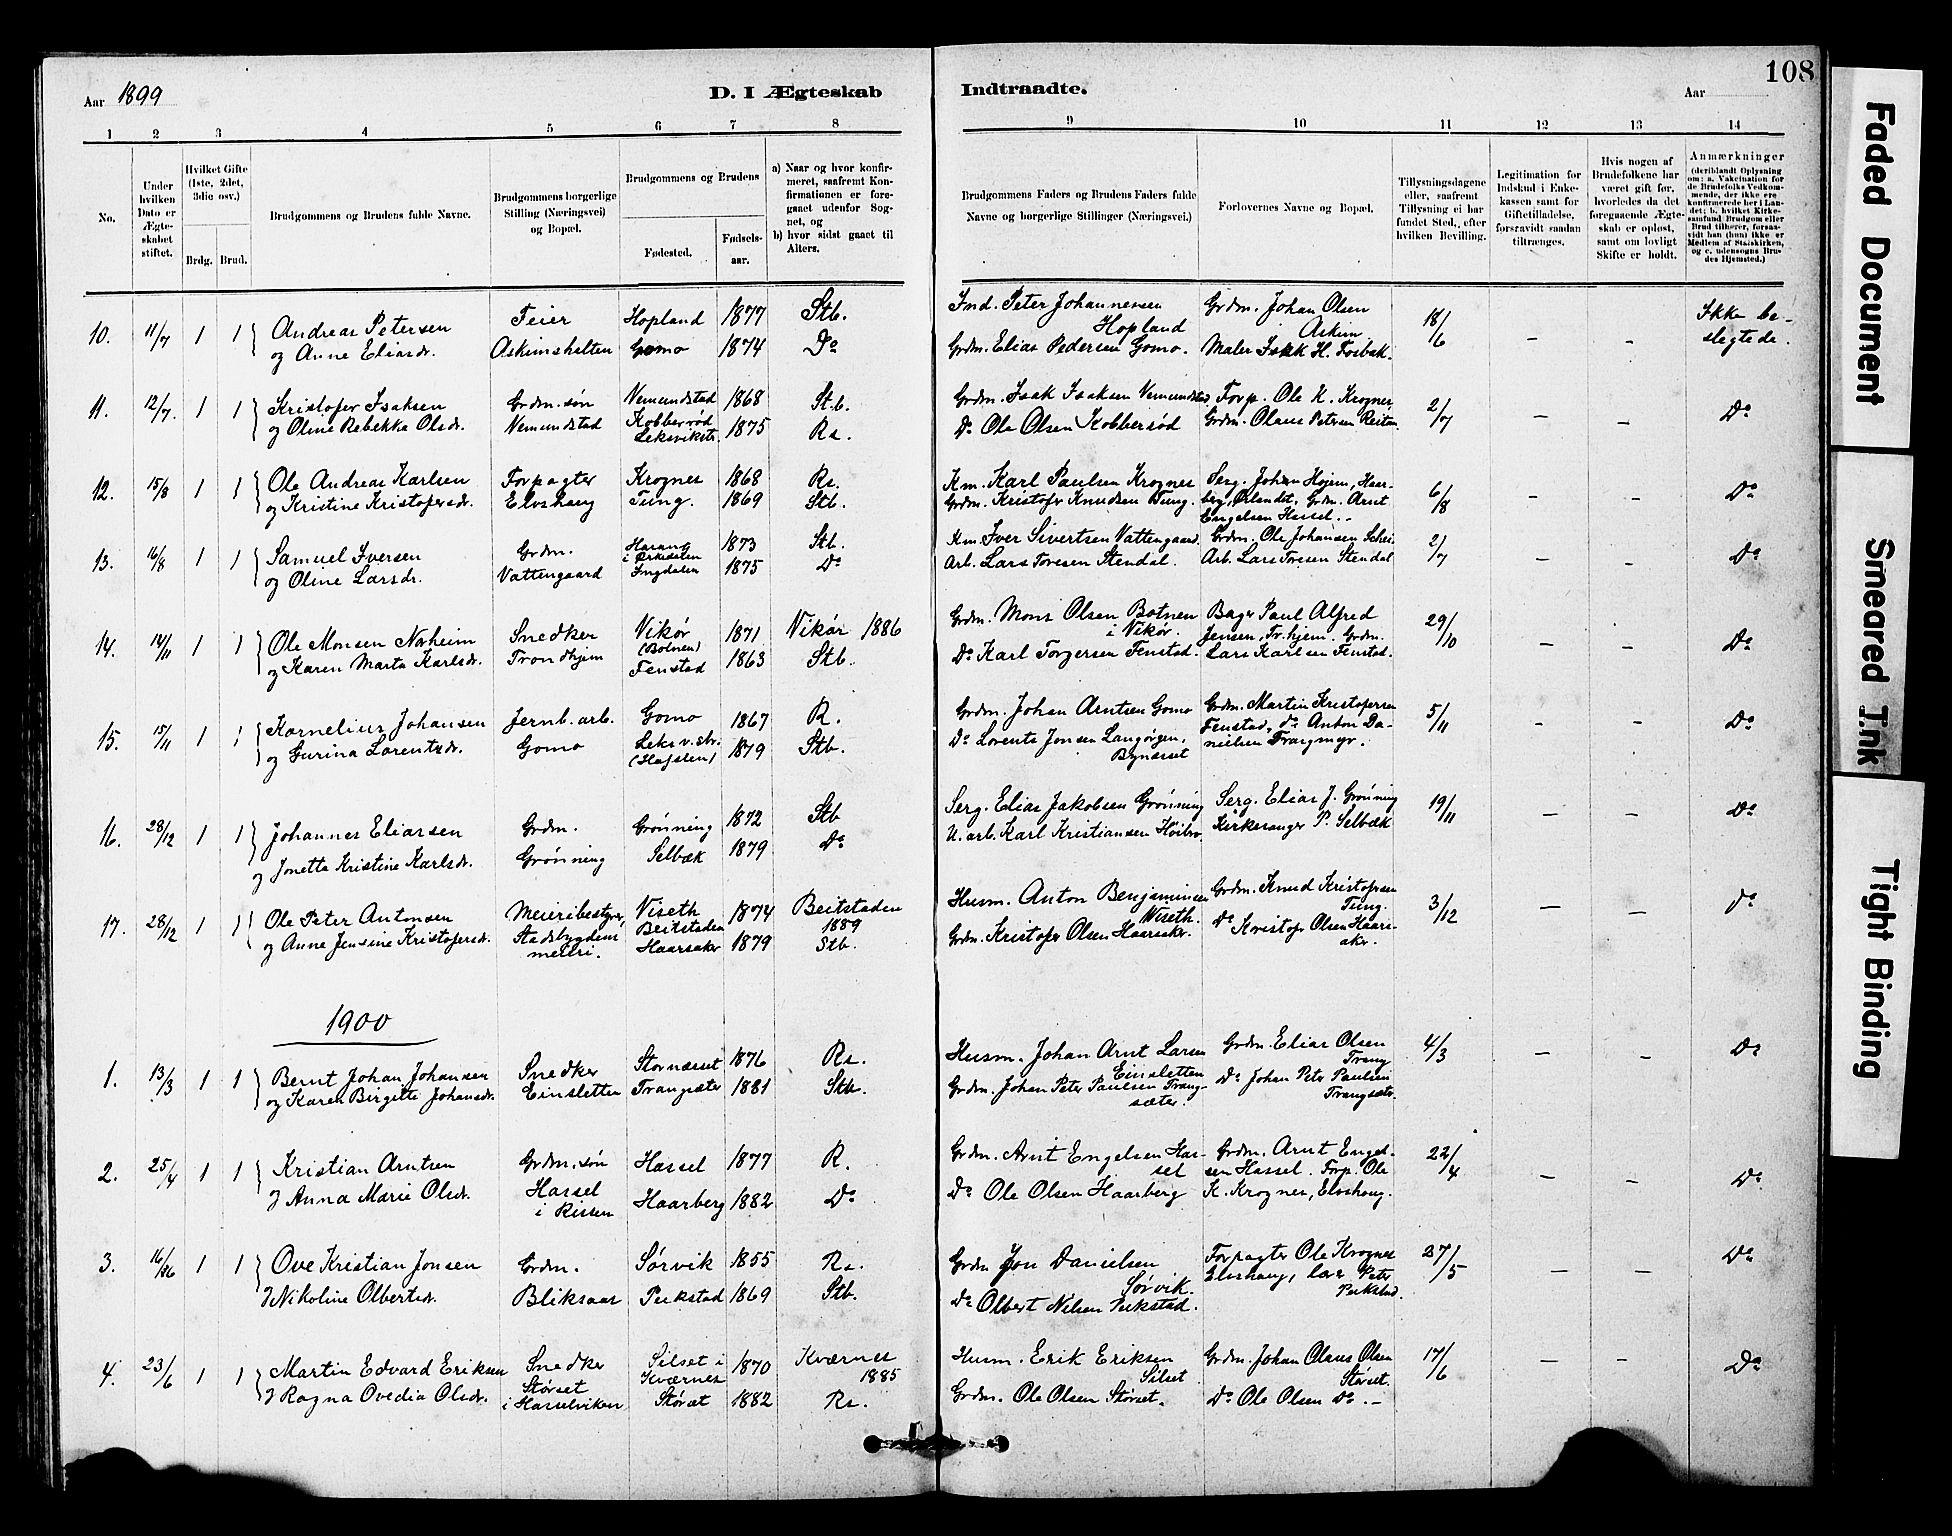 Aar 1899
D. I Ægteskab
Indtraadte.
Aar
108
1 2 3 4 5 6 7 8
9 10 11 12 13 14
No.
Under hvilken Dato er Ægteskabet stiftet.
Hvilket Gifte (1ste, 2det, 3die osv.)
Brdg. Brud.
Brudgommens og Brudens fulde Navne.
Brudgommens borgerlige Stilling (Næringsvei) og Bopæl.
Brudgommens og Brudens
Fødested.
Fødselsaar.
a) Naar og hvor konfirmeret, saafremt Konfirmationen er foregaaet udenfor Sognet, og
b) hvor sidst gaaet til Alters.
Brudgommens Faders og Brudens Faders fulde Navne og borgerlige Stillinger (Næringsvei.)
Forlovernes Navne og Bopæl.
Tillysningsdagene eller, saafremt Tillysning ei har fundet Sted, efter hvilken Bevilling.
Legitimation for Indskud i Enkekassen samt for Giftetilladelse, forsravidt saadan tiltrænges.
Hvis nogen af Brudefolkene har været gift før, hvorledes da det foregaaende Ægteskab er opløst, samt om lovligt Skifte er holdt.
Anmærkninger
10. 11/7 1 1 Andreas Petersen Feier Hopland 1877 Stb. Ind. Peter Johannessen Hopland Grdm. Johan Olsen Askim 18/6 – – Ikke beslegtede.
og Anne Eliasdr. Askimshelten Gomo 1874 Do Grdm. Elias Pedersen Gomo. Maler Isak H. Fosbak.
11. 12/7. 1 1 Kristofer Isaksen Grdm. søn Nemundstad 1868 Stb. Grdm. Isak Isaksen Nemundstad Forp. Ole K. Krognes 2/7 – – Do
og Oline Rebekka Olsdr. Nemundstad Kobberrød Leksvikstr. 1875 Rs. Do Ole Olsen Kobberrød Grdm. Olaus Petersen
12. 15/8 1 1 Ole Andreas Karlsen Forpagter Krognes 1868 Rs. Km. Karl Paulsen Krognes Serg. Johan Hojem, Haarberg, Ørlandet. Grdm. Arnt Engelsen Hassel. 6/8 – – Do
og Kristine Kristofersdr. Elvshaug Tung. 1869 Stb. Grdm. Kristofer Knudsen Tung.
13. 16/8 1 1 Samuel Iversen Grdm. i Orkedalen 1873 Stb. Km. Iver Sivertsen Vattengaard. Grdm. Ole Johansen Schei 2/7 – – Do
og Oline Larsdr. Vattengaard Ingdalen 1875 Do Arb. Lars Toresen Stendal. Arb. Lars Toresen Stendal
14. 14/11 1 1 Ole Monsen Norheim Snedker Vikør (Botnen) 1871 Vikør 1886 Grdm. Mons Olsen Botnen i Vikør. Bager Paul Alfred Jensen, Tr.hjem. Grdm. 29/10 – – Do
og Karen Marta Karlsdr. Trondhjem Fenstad 1863 Stb. Do Karl Torgersen Fenstad. Lars Karlsen Fenstad.
15. 15/11 1 1 Kornelius Johansen Jernb. arb. Gomo 1867 R. Grdm. Johan Arntsen Gomo Grdm. Martin Kristofersen Fenstad, do Anton Danielsen Trangmyr. 5/11 – – Do
og Gurina Lorentsdr. Gomo Leksv. str. (Hafsten) 1879 Stb. Do Lorents Jonsen Langørgen, Bynesset
16. 28/12 1 1 Johannes Eliassen Grdm. Grønning 1872 Stb Serg. Elias Jakobsen Grønning Serg. Elias J. Grønning 19/11 – – Do
og Jonetta Kristine Karlsdr. Grønning Selbæk 1879 Do U. arb. Karl Kristiansen Høibro. Kirkesanger P. Selbæk
17. 28/12 1 1 Ole Peter Antonsen Meieribestyrer, Viseth Beitstaden 1874 Beitstaden 1889 Husm. Anton Benjaminsen Viseth. Grdm. Knud Kristofersen Tung. 3/12 – – Do
og Anne Jensine Kristofersdr. Stadsbygdens meieri. Haarsaker 1879 Stb. Grdm. Kristofer Olsen Haarsaker. Do Kristofer Olsen Haarsaker.
1900
1. 13/3 1 1 Bernt Johan Johansen Snedker Stornæsset 1876 Rs. Husm. Johan Arnt Larsen Einsletten Grdm. Elias Olsen Trang 4/3 – – Do
og Karen Birgitte Johansdr. Einsletten Trangsæter 1881 Stb. Grdm. Johan Peter Paulsen Trangsæter. Do Johan Peter Paulsen Trangsæter.
2. 25/4 1 1 Kristian Arntsen Grdm. søn Hassel 1877 R. Grdm. Arnt Engelsen Hassel Grdm. Arnt Engelsen Hassel. Forp. Ole 22/4 – – Do
og Anna Marie Olsdr. Hassel i Rissen Haarberg 1882 Do Do Ole Olsen Haarberg K. Krognes, Elvshaug.
3. 16/6 1 1 Ove Kristian Jonsen Grdm. Sørvik 1855 Rs. Grdm Jon Danielsen Sørvik. Forpagter Ole Krognes Elvshaug, Peter Pukstad. 27/5 – – Do
og Nikoline Olbertsdr. Bliksaas Pukstad 1869 Stb. Do Olbert Nilsen Pukstad.
4. 23/6 1 1 Martin Edvard Eriksen Snedker Silset i Kværnes 1870 Kværnes 1885 Husm. Erik Eriksen Silset Grdm. Johan Olaus Olsen Størset. 17/6 – – Do
og Ragna Ovedia Olsdr. Størset i Hasselviken Størset 1882 Rs. Grdm. Ole Olsen Størset. Do Ole Olsen Do. –
Faded Document
Smeared Ink
Tight Binding